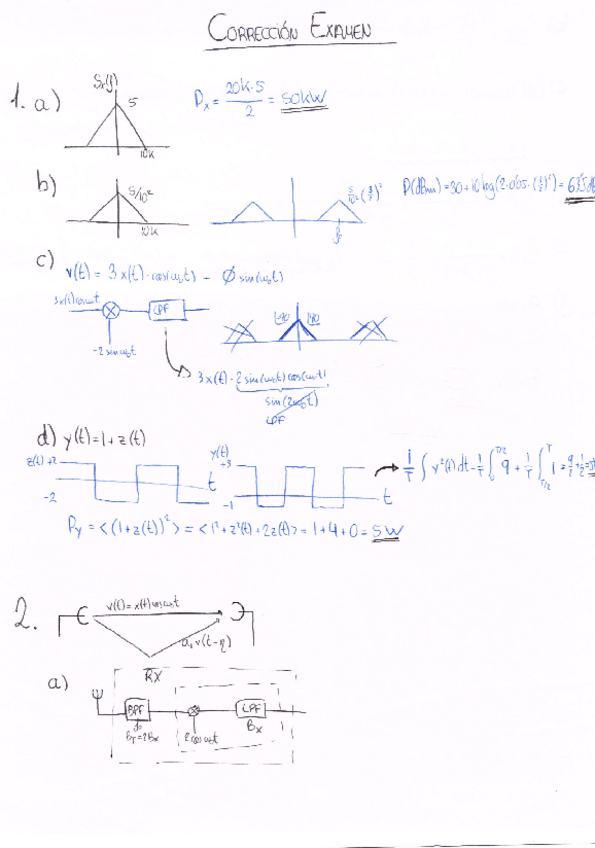 CORRECCIÓN EXAMEN
1. a) Sx(f) 5 10K
Px = 20K·5 / 2 = 50KW
b) 5/10² 10K 5/10² (3/2)²
P(dBm) = 30 + 10 log(2·0'05·
c) v(t) = 3x(t)·cos(ω₀t) - Ø sin(ω₀t)
LPF
-2 sin ω₀t
3x(t)·2 sin(ω₀t) cos(ω₀t)
sin(2ω₀t)
LPF
d) y(t) = 1 + z(t)
z(t) +2 -2 t
y(t) +3 -1 t
1/T ∫ y²(t) dt = 1/T ∫₀^T/2 9 + 1/T ∫_T/2^T 1 = 9/2 + 1/2 =
Py = <(1+z(t))²> = <1² + z²(t) + 2z(t)> = 1+4+0 = 5W
2. v(t) = x(t) cos ω₀t
a)
RX
BPF LPF
BT=2Bx 2 cos ω₀t Bx